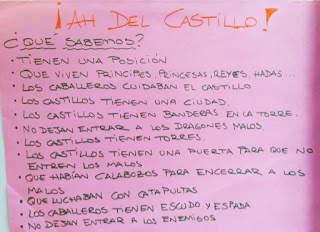 ¡AH DEL CASTILLO!
¿QUÉ SABEMOS?
• TIENEN UNA POSICIÓN
• QUE VIVEN PRÍNCIPES, PRINCESAS, REYES, HADAS...
• LOS CABALLEROS CUIDABAN EL CASTILLO
• LOS CASTILLOS TIENEN UNA CIUDAD.
• LOS CASTILLOS TIENEN BANDERAS EN LA TORRE.
• NO DEJAN ENTRAR A LOS DRAGONES MALOS.
• LOS CASTILLOS TIENEN TORRES.
• LOS CASTILLOS TIENEN UNA PUERTA PARA QUE NO
ENTREN LOS MALOS
• QUE HABÍAN CALABOBOS PARA ENCERRAR A LOS
MALOS
• QUE LUCHABAN CON CATAPULTAS
• LOS CABALLEROS TIENEN ESCUDO Y ESPADA
• NO DEJAN ENTRAR A LOS ENEMIGOS